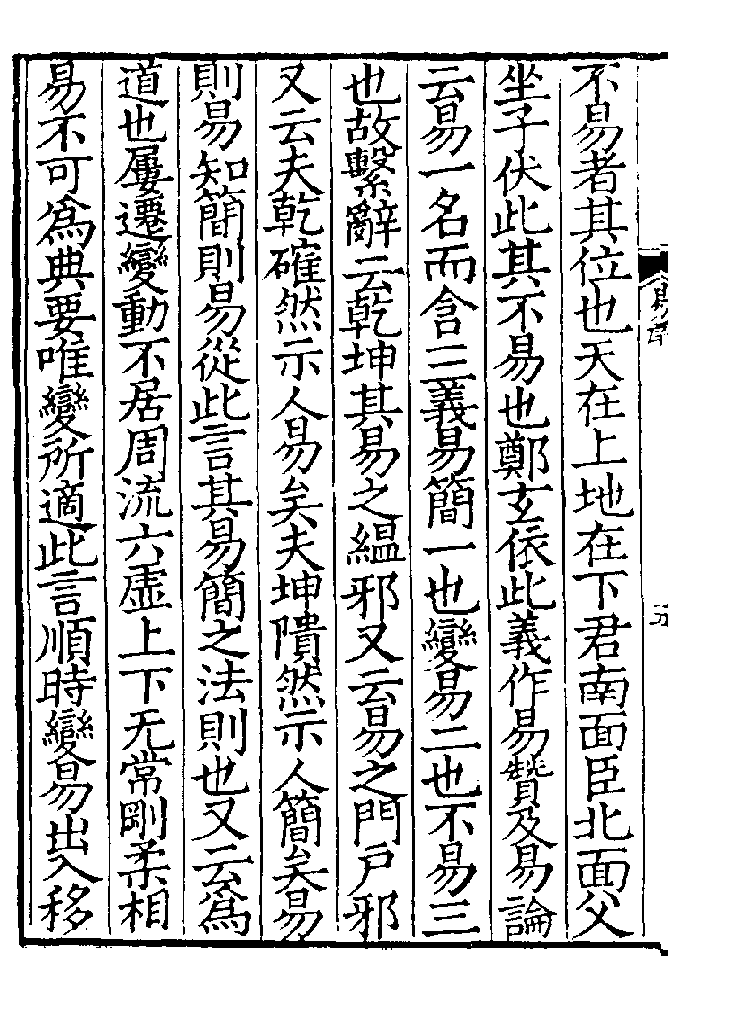 不易者其位也天在上地在下君南面臣北面父
坐子伏此其不易也鄭玄依此義作易贊及易論
云易一名而含三義易簡一也變易二也不易三
也故繫辭云乾坤其易之緼邪又云易之門戶邪
又云夫乾確然示人易矣夫坤隤然示人簡矣易
則易知簡則易從此言其易簡之法則也又云為
道也屢遷變動不居周流六虛上下无常剛柔相
易不可為典要唯變所適此言順時變易出入移